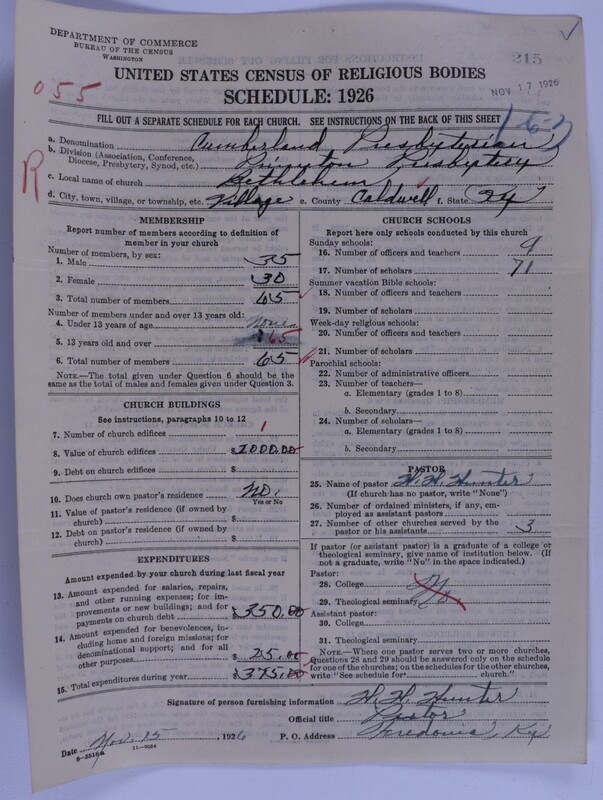 DEPARTMENT OF COMMERCE
BUREAU OF THE CENSUS
WASHINGTON
215
NOV 17 1926
055
UNITED STATES CENSUS OF RELIGIOUS BODIES
SCHEDULE: 1926
FILL OUT A SEPARATE SCHEDULE FOR EACH CHURCH. SEE INSTRUCTIONS ON THE BACK OF THIS SHEET
a. Denomination Cumberland Presbyterian
b. Division (Association, Conference, Diocese, Presbytery, Synod, etc.) Princeton Presbytery
c. Local name of church Bethlehem
R
d. City, town, village, or township, etc. Village e. County Caldwell f. State Ky
MEMBERSHIP
Report number of members according to definition of
member in your church
Number of members, by sex:
1. Male 35
2. Female 30
3. Total number of members 65
Number of members under and over 13 years old:
4. Under 13 years of age none
5. 13 years old and over 65
6. Total number of members 65
NOTE.—The total given under Question 6 should be
same as the total of males and females given under Question 3.
CHURCH BUILDINGS
See instructions, paragraphs 10 to 12
7. Number of church edifices 1
8. Value of church edifices $1000.00
9. Debt on church edifices $
10. Does church own pastor's residence No.
Yes or No
11. Value of pastor's residence (if owned by
church) $
12. Debt on pastor's residence (if owned by
church) $
EXPENDITURES
Amount expended by your church during last fiscal year
13. Amount expended for salaries, repairs,
and other running expenses; for im-
provements or new buildings; and for
payments on church debt $350.00
14. Amount expended for benevolences, in-
cluding home and foreign missions; for
denominational support; and for all
other purposes $25.00
15. Total expenditures during year $375.00
CHURCH SCHOOLS
Report here only schools conducted by this church
Sunday schools:
16. Number of officers and teachers 9
17. Number of scholars 71
Summer vacation Bible schools:
18. Number of officers and teachers
19. Number of scholars
Week-day religious schools:
20. Number of officers and teachers
21. Number of scholars
Parochial schools:
22. Number of administrative officers
23. Number of teachers—
a. Elementary (grades 1 to 8)
b. Secondary
24. Number of scholars—
a. Elementary (grades 1 to 8)
b. Secondary
PASTOR
25. Name of pastor H. H. Hunter
(If church has no pastor, write "None")
26. Number of ordained ministers, if any, em-
ployed as assistant pastors
27. Number of other churches served by the
pastor or his assistants 3
If pastor (or assistant pastor) is a graduate of a college or
theological seminary, give name of institution below. (If
not a graduate, write "No" in the space indicated.)
Pastor:
28. College No
29. Theological seminary
Assistant pastor:
30. College
31. Theological seminary
NOTE.—Where one pastor serves two or more churches,
Questions 28 and 29 should be answered only on the schedule
for one of the churches; on the schedules for the other churches,
write "See schedule for church."
Signature of person furnishing information H. H. Hunter
Official title Pastor
Date Nov. 15, 1926 P. O. Address Fredonia, Ky
8-5518a 11-9034